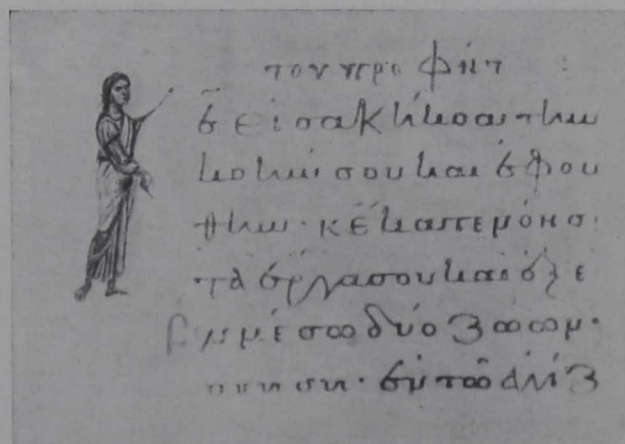 του προφητ
εἰσακήκοα την
ἀκοήν σου και ἐφου
ήθην· κε κατενόησα
τὰ ἔργα σου και ἐξέ
ἐν μέσω δύο ζώων
ἐν τῶ ἐγγίζ